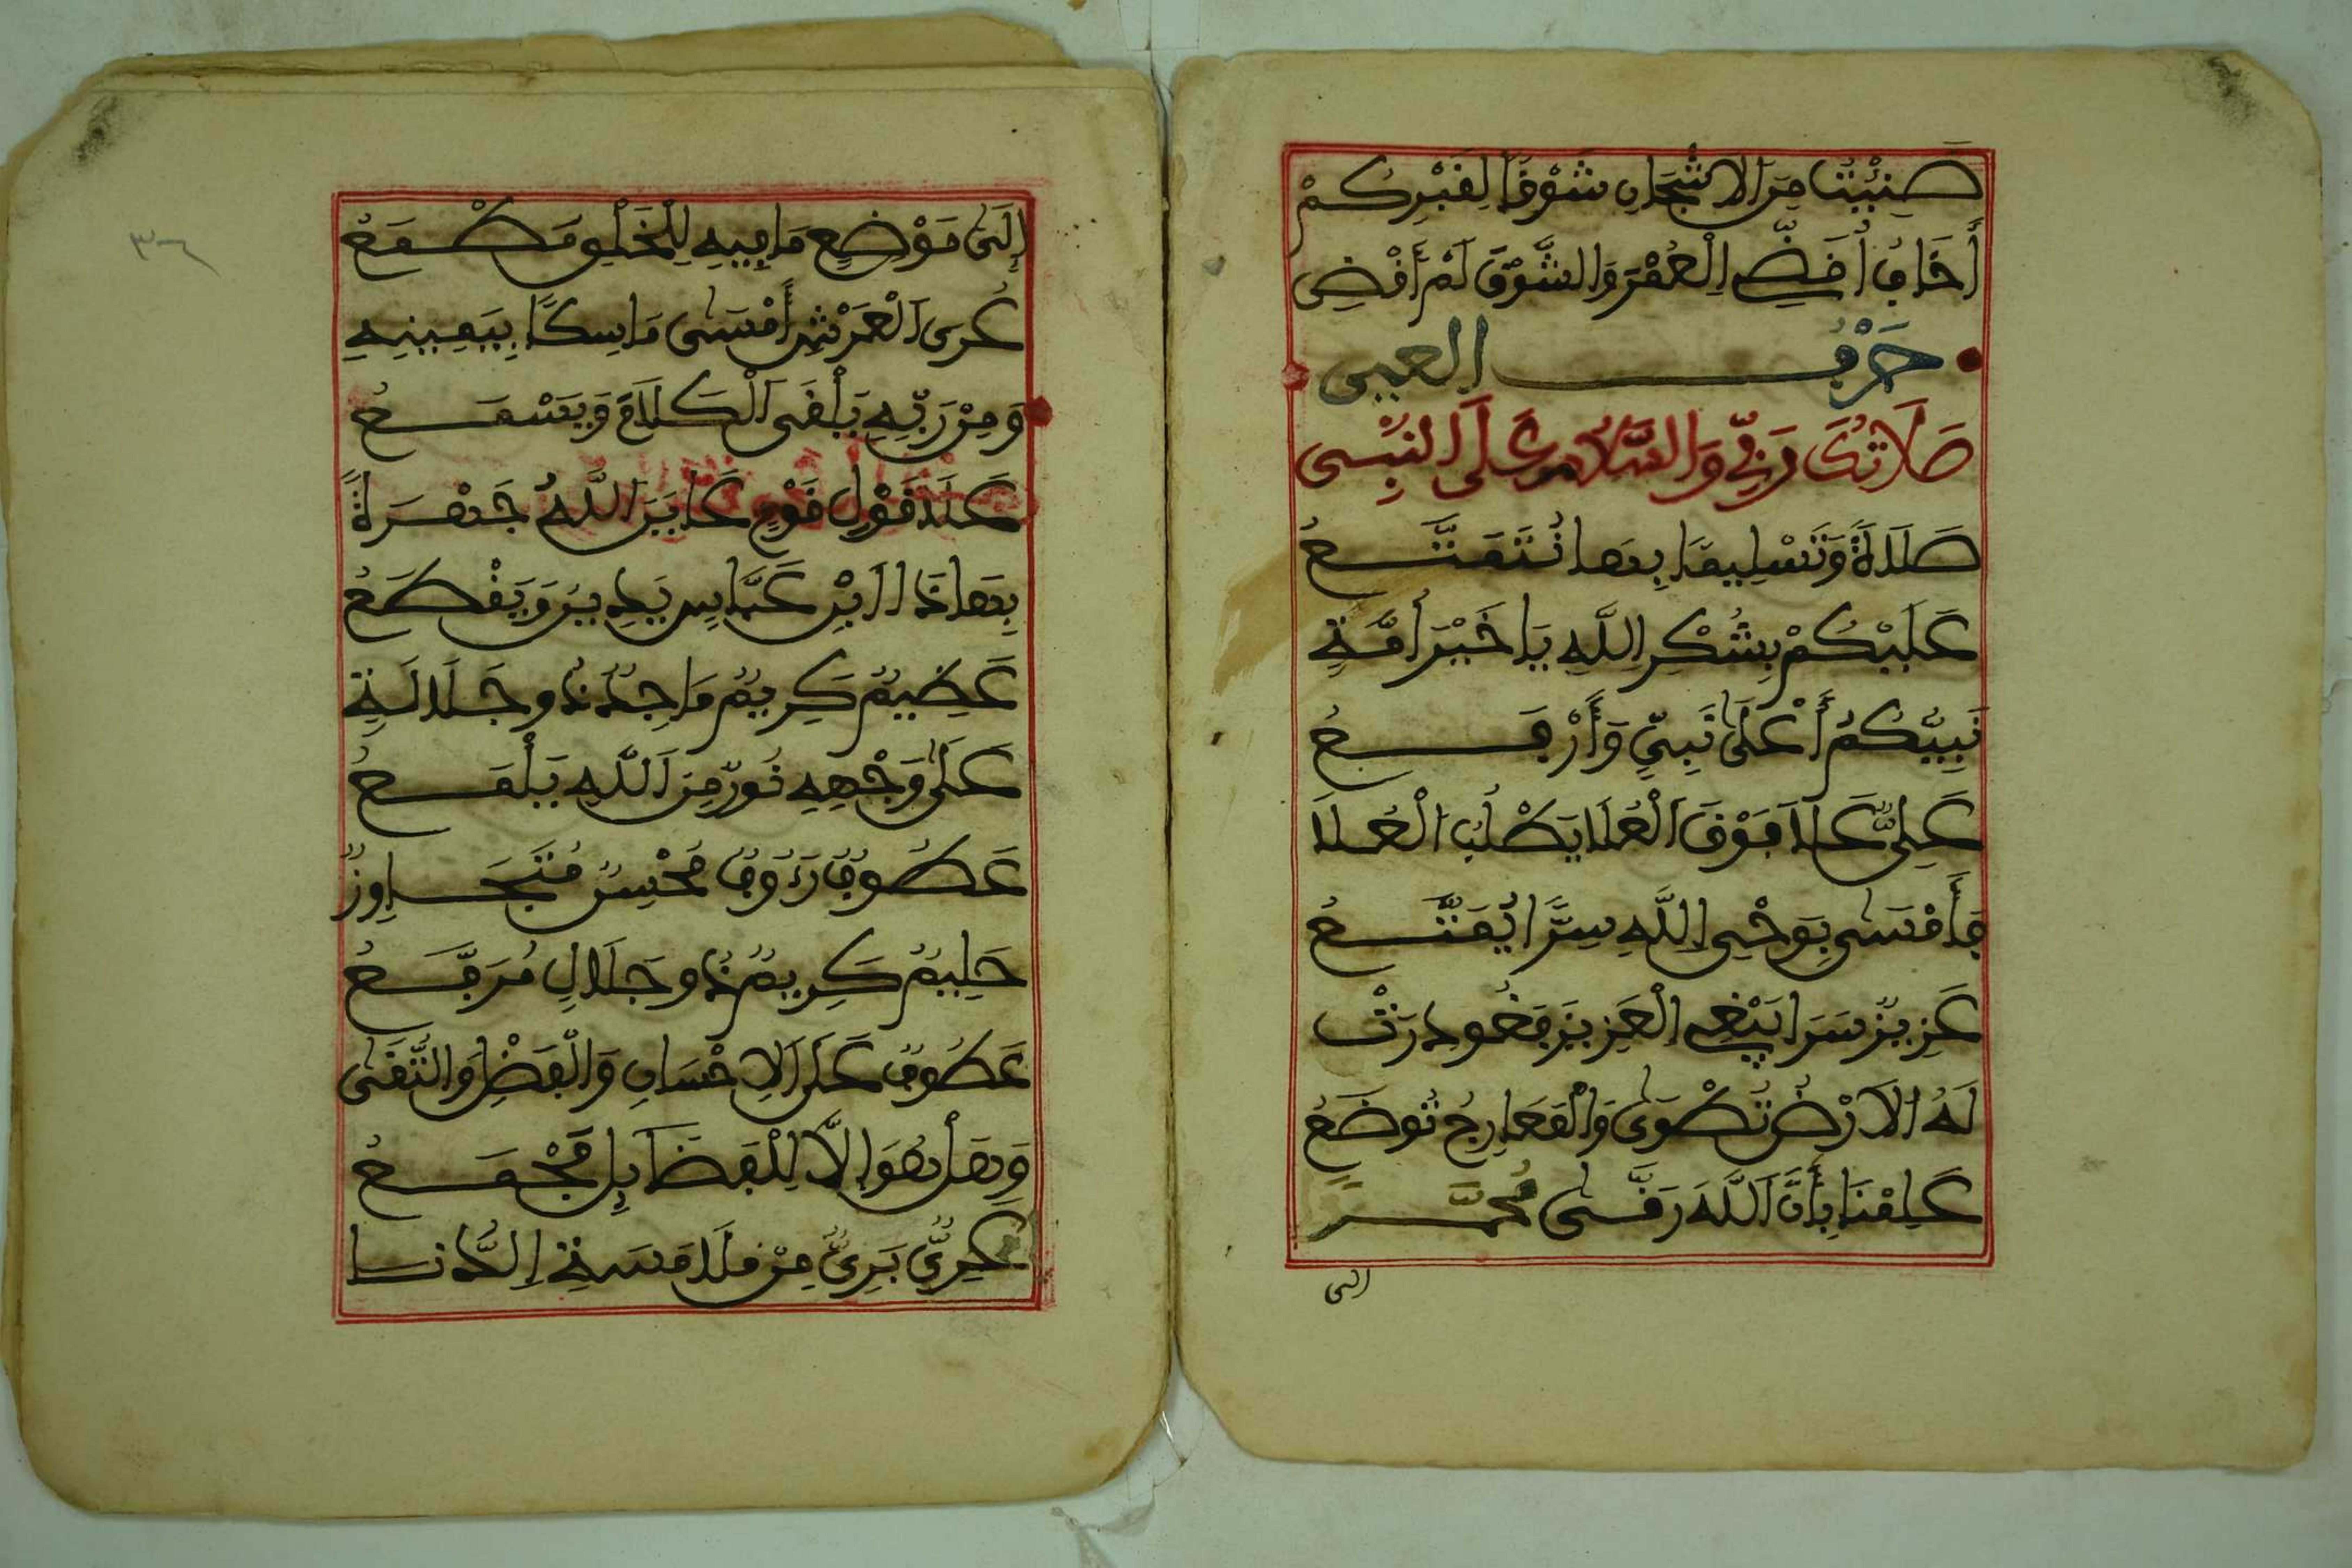 ضَنِئْتُ مِنَ الَاشْجَانِ شَوْقاً لِقَبْرِكُمْ
أَخَافُ أُقَضِّي الْعُمْرَ وَالشَّوْقَ لَمْ أَقْضِ
حَرْفُ العين
صَلَاتُكَ رَبِّي وَالسَّلَامُ عَلَى النَّبِي
صَلَاةً وَتَسْلِيماً بِهَا نُتَمَتَّعُ
عَلَيْكُمْ بِشُكْرِ اللَّهِ يَا خَيْرَ أُمَّةٍ
نَبِيُّكُمُ أَعْلَى نَبِيٍّ وَأَرْفَعُ
عَلِيٌّ عَلَا فَوْقَ الْعُلَا يَطْلُبُ الْعُلَا
فَأَمْسَى بِوَحْيِ اللَّهِ سِرًّا يُمَتَّعُ
عَزِيزٌ سَرَا يَبْغِي الْعَزِيزَ فَغُودِرَتْ
لَهُ الَارْضُ تُطْوَى وَالْمَعَارِجُ تُوضَعُ
عَلِمْنَا بِأَنَّ اللَّهَ رَقَّى مُحَمَّداً
الى
إِلَى مَوْضِعٍ مَا فِيهِ لِلْخَلْقِ مَطْمَعُ
عُرَى الْعَرْشِ أَمْسَى مَاسِكًا بِيَمِينِهِ
وَمِنْ رَبِّهِ يَلْقَى الْكَلَامَ وَيَسْمَعُ
عَلَا قَوْلِ قَوْمٍ عَايَنَ اللَّهَ جَهْرَةً
بِهَاذَا ابْنُ عَبَّاسٍ يَدِينُ وَيَقْطَعُ
عَظِيمٌ كَرِيمٌ مَاجِدٌ ذُو جَلَالَةٍ
عَلَى وَجْهِهِ نُورٌ مِنَ اللَّهِ يَلْمَعُ
عَطُوفٌ رَءُوفٌ مُحْسِنٌ مُتَجَاوِزٌ
حَلِيمٌ كَرِيمٌ ذُو جَلَالٍ مُرَفَّعُ
عَطُوفٌ عَلَى الِاحْسَانِ وَالْفَضْلِ وَالتُّقَى
وَهَلْ هُوَ إِلَّا لِلْفَضَائِلِ مَجْمَعُ
عَرِيٌّ بَرِيٌّ مِنْ مَلَامَسَةِ الدُّنَسا